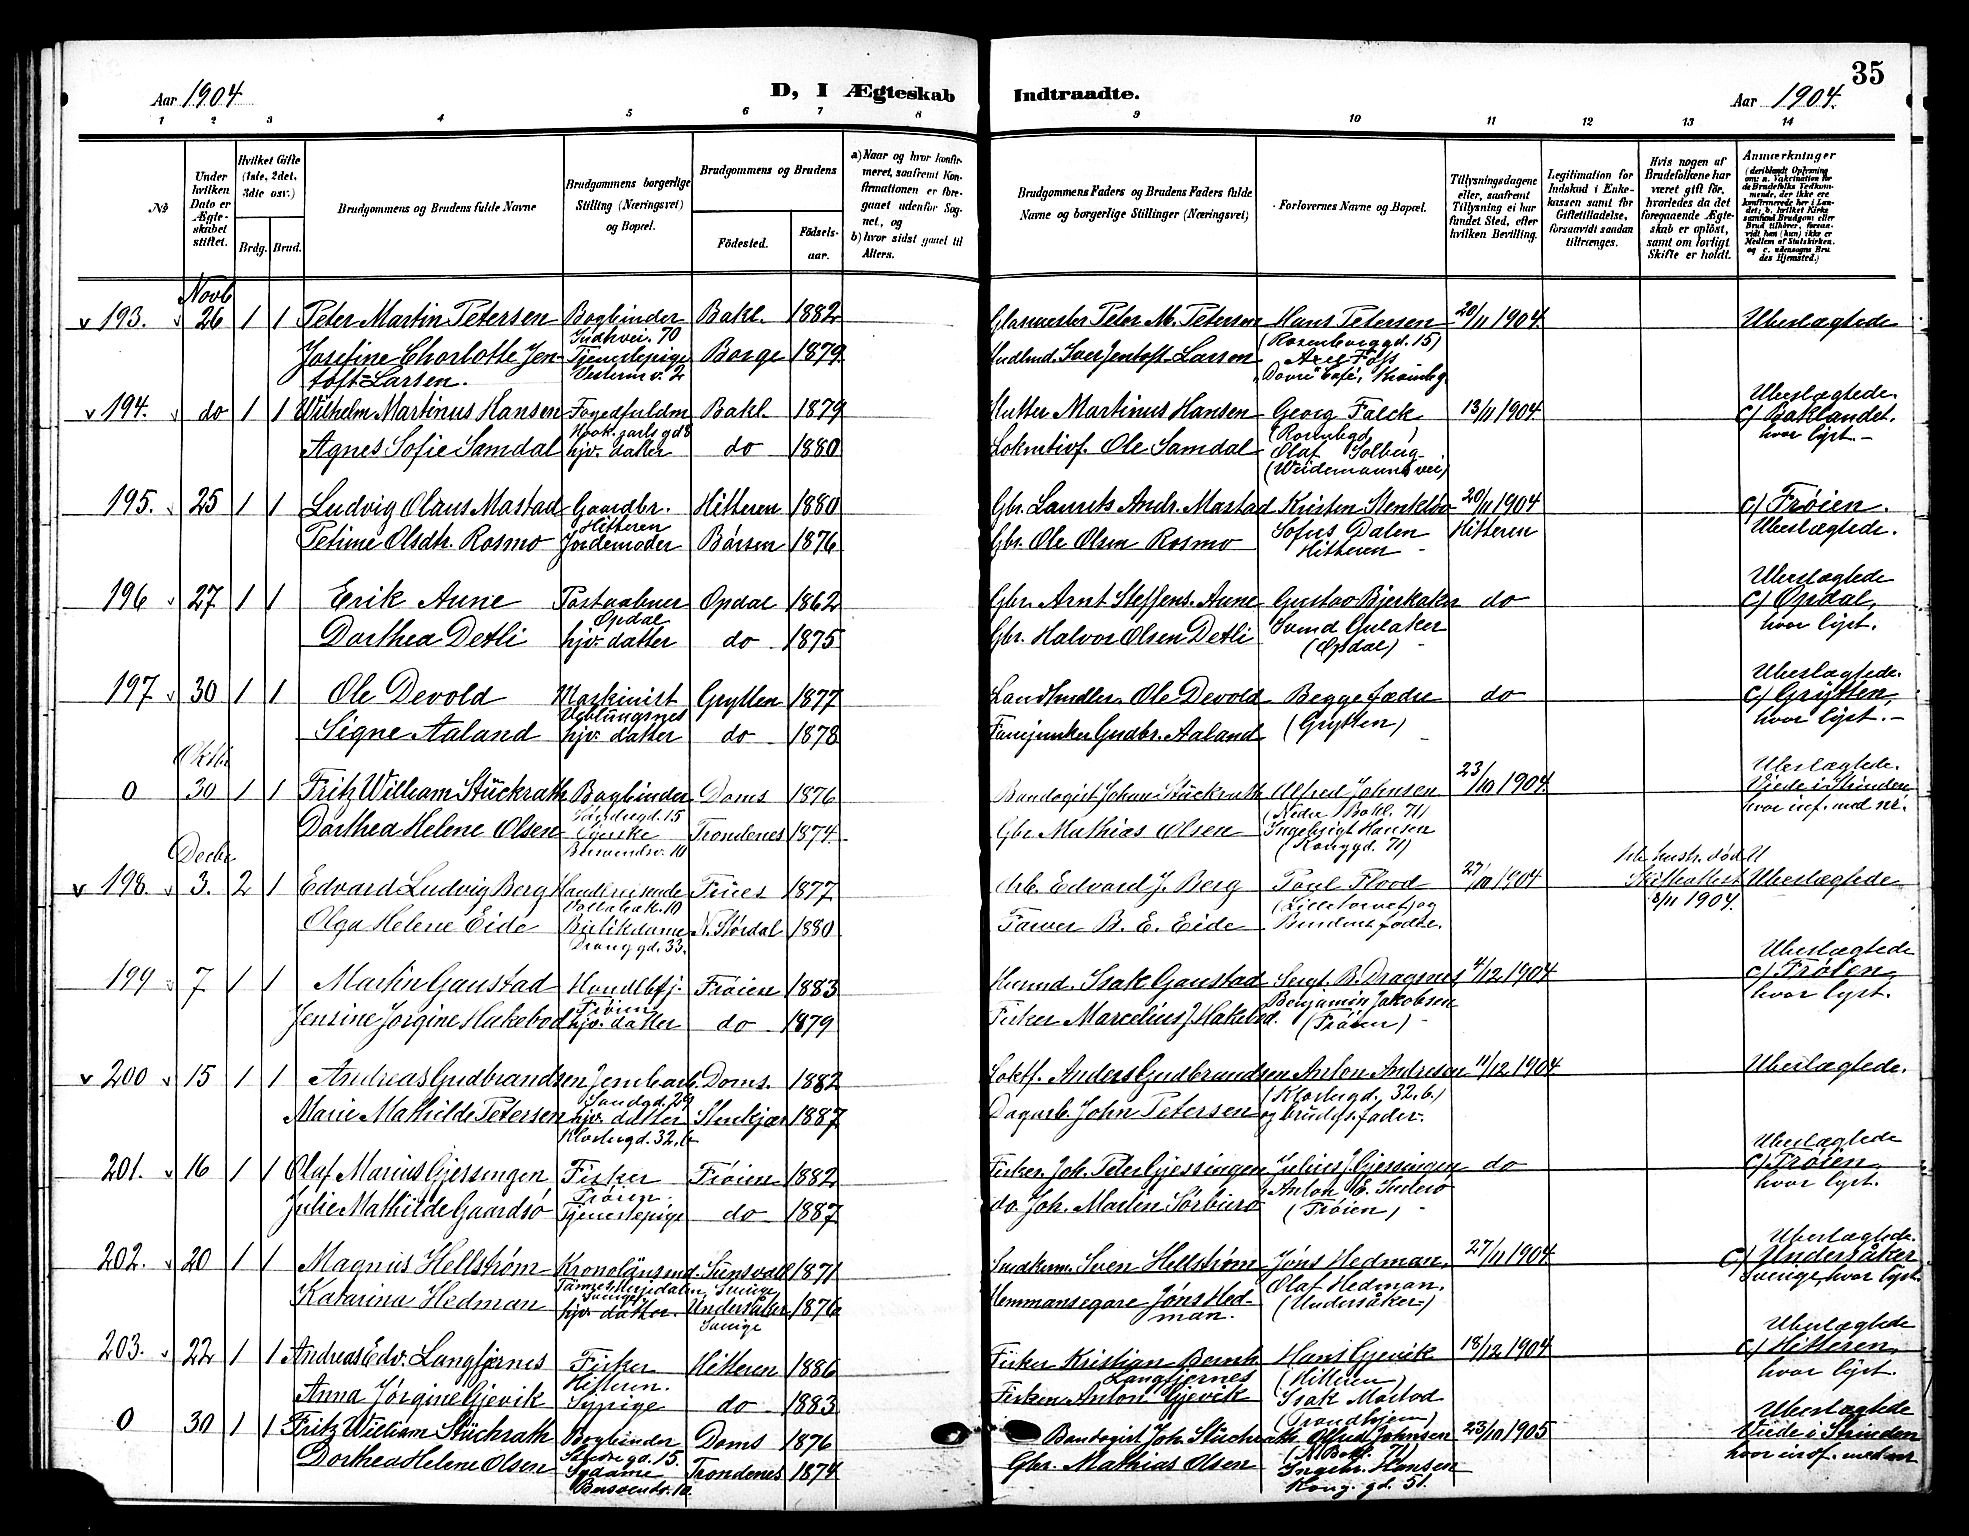 35
Aar 1904
D, I Ægteskab
Indtraadte.
Aar 1904.
1 2 3 4 5 6 7 8 9 10 11 12 13 14
No
Under hvilken Dato er Ægteskabet stiftet.
Hvilket Gifte (1ste, 2det, 3die osv.)
Brdg. Brud.
Brudgommens og Brudens fulde Navne
Brudgommens borgerlige Stilling (Næringsvei) og Bopæl.
Brudgommens og Brudens
Födested.
Födselsaar.
a) Naar og hvor konfirmeret, saafremt Konfirmationen er foregaaet udenfor Sognet, og
b) hvor sidst gaaet til Alters.
Brudgommens Faders og Brudens Faders fulde Navne og borgerlige Stillinger (Næringsvei)
Forlovernes Navne og Bopæl.
Tillysningsdagene eller, saafremt Tillysning ei har fundet Sted, efter hvilken Bevilling.
Legitimation for Indskud i Enkekassen samt for Giftetilladelse, forsaavidt saadan tiltrænges.
Hvis nogen af Brudefolkene har været gift för, hvorledes da det foregaaende Ægteskab er oplöst, samt om lovligt Skifte er holdt.
Anmærkninger
Novb
193. 26 1 1 Peter Martin Petersen Bogbinder Bakl. 1882 Glasmester Peter M. Petersen Hans Petersen 20/11 1904 Ubeslægtede
Indhvei. 70 (Rosenborggd. 15)
Josefine Charlotte Jen- Tjenestepige Borge 1879 Axel Foss
toft-Larsen. "Dovre" Café,
194. do 1 1 Wilhelm Martinus Hansen Fogedfuldm Bakl. 1879 Martinus Hansen Georg Falck 13/11 1904 Ubeslægtede.
c/ Baklandet.
hvor lyst.
Agnes Sofie Samdal hjv. datter do 1880 Ole Samdal Olaf Solberg
(Weidemanns vei)
195. 25 1 1 Ludvig Olaus Mastad Gaardbr. Hitteren 1880 Gbr. Laurits Andr. Mastad Kristen 20/11 1904 c/ Frøien.
Hitteren Sofus Dalen Hitteren Ubeslægtede.
Petine Olsdtr. Rosmo Jordemoder Børsen 1876 Gbr. Ole Olsen Rosmo Hitteren
196 27 1 1 Erik Aune Postaabner Opdal 1862 Gbr. Arnt Steffens. Aune Gustav do Ubeslægtede
c/ Opdal,
hvor lyst.
Opdal
Dorthea Detli hjv. datter do 1875 Gbr. Halvor Olsen Detli Svend Gulaker
(Opdal)
197 30 1 1 Ole Devold Maskinist Grytten 1877 Landhndler. Ole Devold Begge fædre do Ubeslægtede.
c/ Grytten,
hvor lyst.
Veblungsnes (Grytten)
Signe Aaland hjv. datter do 1878 Fanejunker Gudbr. Aaland
Oktbr
0 30 1 1 Fritz William Stückrath Bogbinder Doms 1876 Bandagist Johan Stückrath Alfred Johnsen 23/10 1904. Ubeslægtede.
Viede i Strinden
(Nedre Bakl. 71)
Dorthea Helene Olsen Trondenes 1874 Gbr. Mathias Olsen Ingebrigt Hansen
(Konggd. 71)
Decbr
198. 3. 2 1 Edvard Ludvig Berg Handlreisende 1877 Arb. Edvard J. Berg Paul Flood 27/11 1904 Skifteattest 8/11 1904. Ubeslægtede
(Lilletorvet) og
Olga Helene Eide Butikdame N. Stördal 1880 Farver B. E. Eide Brudens fader.
Dronggd. 33.
199 7 1 1 Martin Gaustad Handlbtj. Frøien 1883 Husmd. Isak Gaustad Sergt. B. Dragsnes 4/12 1904 Ubeslægtede
c/ Frøien,
hvor lyst.
Frøien Benjamin Jakobsen
Jensine Jørgine Hakebod hjv. datter do 1879 Fisker Marcelius J. Hakebod. (Frøien)
200 15 1 1 Andreas Gudbrandsen Jernbarb. Doms. 1882 Loktf. Anders Gudbrandsen Anton Andresen 11/12 1904 Ubeslægtede.
Sandgd. 29 (Klostergd. 32.b.)
Marie Mathilde Petersen hjv. datter Stenkjær 1887 Dagarb. John Petersen og brudgs. fader.
Klostergd. 32.b
201. 16 1 1 Olaf Marius Gjessingen Fisker Frøien 1882 Fisker. Joh. Peter Gjessingen Julius J. Gjessingen do Ubeslægtede
c/ Frøien,
hvor lyst.
Frøien. Anton E.
Julie Mathilde Gaardsø Tjenestepige do 1887 do. Joh. Martin Sørburø (Frøien)
202. 20 1 1 Magnus Hellstrøm Kronolänsmd. Sunsvall 1871 Sven Hellstrøm Jöns Hedman, 27/11 1904 Ubeslægtede.
c/ Undersåker
Sverige, hvor lyst.
Sverige Olaf Hedman.
Katarina Hedman hjv. datter. Undersåker 1876 Hemmansegare Jöns Hed- (Undersåker)
Sverige man.
203. 22 1 1 Andreas Edv. Langfjernes Fisker Hitteren 1886 Fisker Kristian Bernh. Hans Gjevik 18/12 1904 Ubeslægtede
c/ Hitteren,
hvor lyst.
Hitteren. Langfjernes (Hitteren)
Anna Jørgine Gjevik Sypige do 1883 Fisker Anton Gjevik Isak Mastad
(Trondhjem)
0 30 1 1 Fritz William Stückrath Bogbinder Doms 1876 Bandagist Joh. Stückrath Alfred Johnsen 23/10 1905 Ubeslægtede
Viede i Strinden
(N. Bakl. 71)
Dorthea Helene Olsen Sydame Trondenes 1874 Gbr. Mathias Olsen Ingebr. Hansen
Kong. gd. 51.